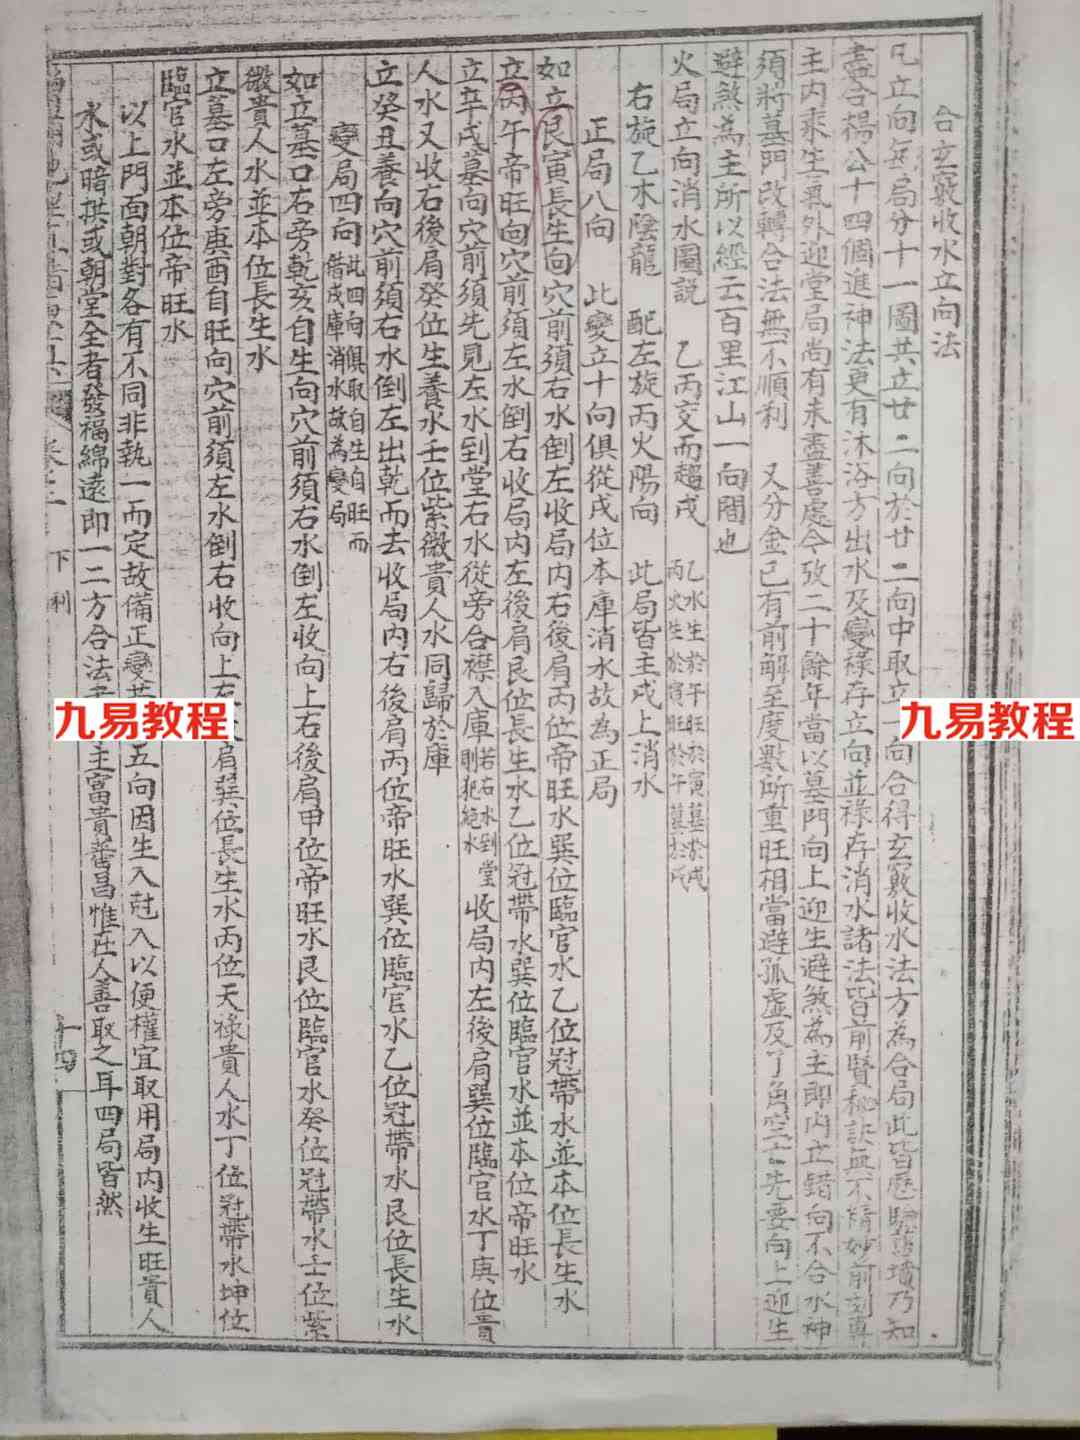 合玄竅收水立向法
凡立向每局分十一圖共立廿二向於廿二向中取立一向合得玄竅收水法方為合局此皆歷驗舊墳乃知
盡合楊公十四個進神法更有沐浴方出水及變祿存立向並祿存消水諸法皆前賢秘訣無不精妙前刻專
主內乘生氣外迎堂局尚有未盡善處今攷二十餘年當以墓門向上迎生避煞為主即內立錯向不合水神
須將墓門改轉合法無不順利 又分金已有前解至度數所重旺相當避孤虛及了角空亡先要向上迎生
避煞為主所以經云百里江山一向間也
火局立向消水圖說 乙丙交而趨戌 乙水生於午旺於寅墓於戌
丙火生於寅旺於午墓於戌
右旋乙木陰龍 配左旋丙火陽向 此局皆主戌上消水
正局八向 此變立十向俱從戌位本庫消水故為正局
如立艮寅長生向穴前須右水倒左收局內右後肩丙位帝旺水巽位臨官水乙位冠帶水並本位長生水
立丙午帝旺向穴前須左水倒右收局內左後肩艮位長生水乙位冠帶水巽位臨官水並本位帝旺水
立辛戌墓向穴前須先見左水到堂右水從旁合襟入庫 若右水到堂
則犯絕水 收局內左後肩巽位臨官水丁庚位貴
人水又收右後肩癸位生養水壬位紫微貴人水同歸於庫
立癸丑養向穴前須右水倒左出乾而去收局內右後肩丙位帝旺水巽位臨官水乙位冠帶水艮位長生水
變局四向 此四向俱取自生自旺而
借戌庫消水故為變局
如立墓口右旁乾亥自生向穴前須右水倒左收向上右後肩甲位帝旺水艮位臨官水癸位冠帶水壬位紫
微貴人水並本位長生水
立墓口左旁庚酉自旺向穴前須左水倒右收向上左肩巽位長生水丙位天祿貴人水丁位冠帶水坤位
臨官水並本位帝旺水
以上門面朝對各有不同非執一而定故備正變共五向因生入尅入以便權宜取用局內收生旺貴人
水或暗拱或朝堂全者發福綿遠即一二方合法主富貴蕃昌惟在人善取之耳四局皆然
下 利
十四
九易教程
九易教程